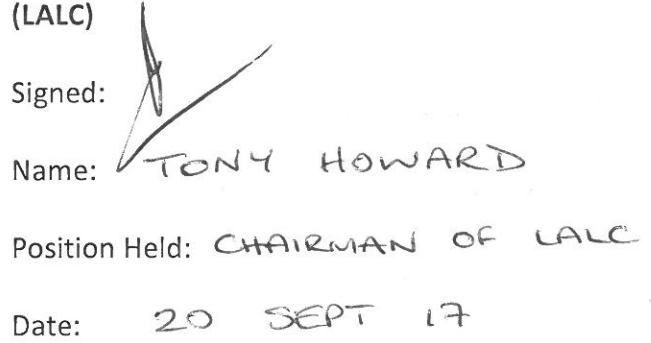 (LALC)
Signed:
Name: TONY HOWARD
Position Held: CHAIRMAN OF LALC
Date: 20 SEPT 17